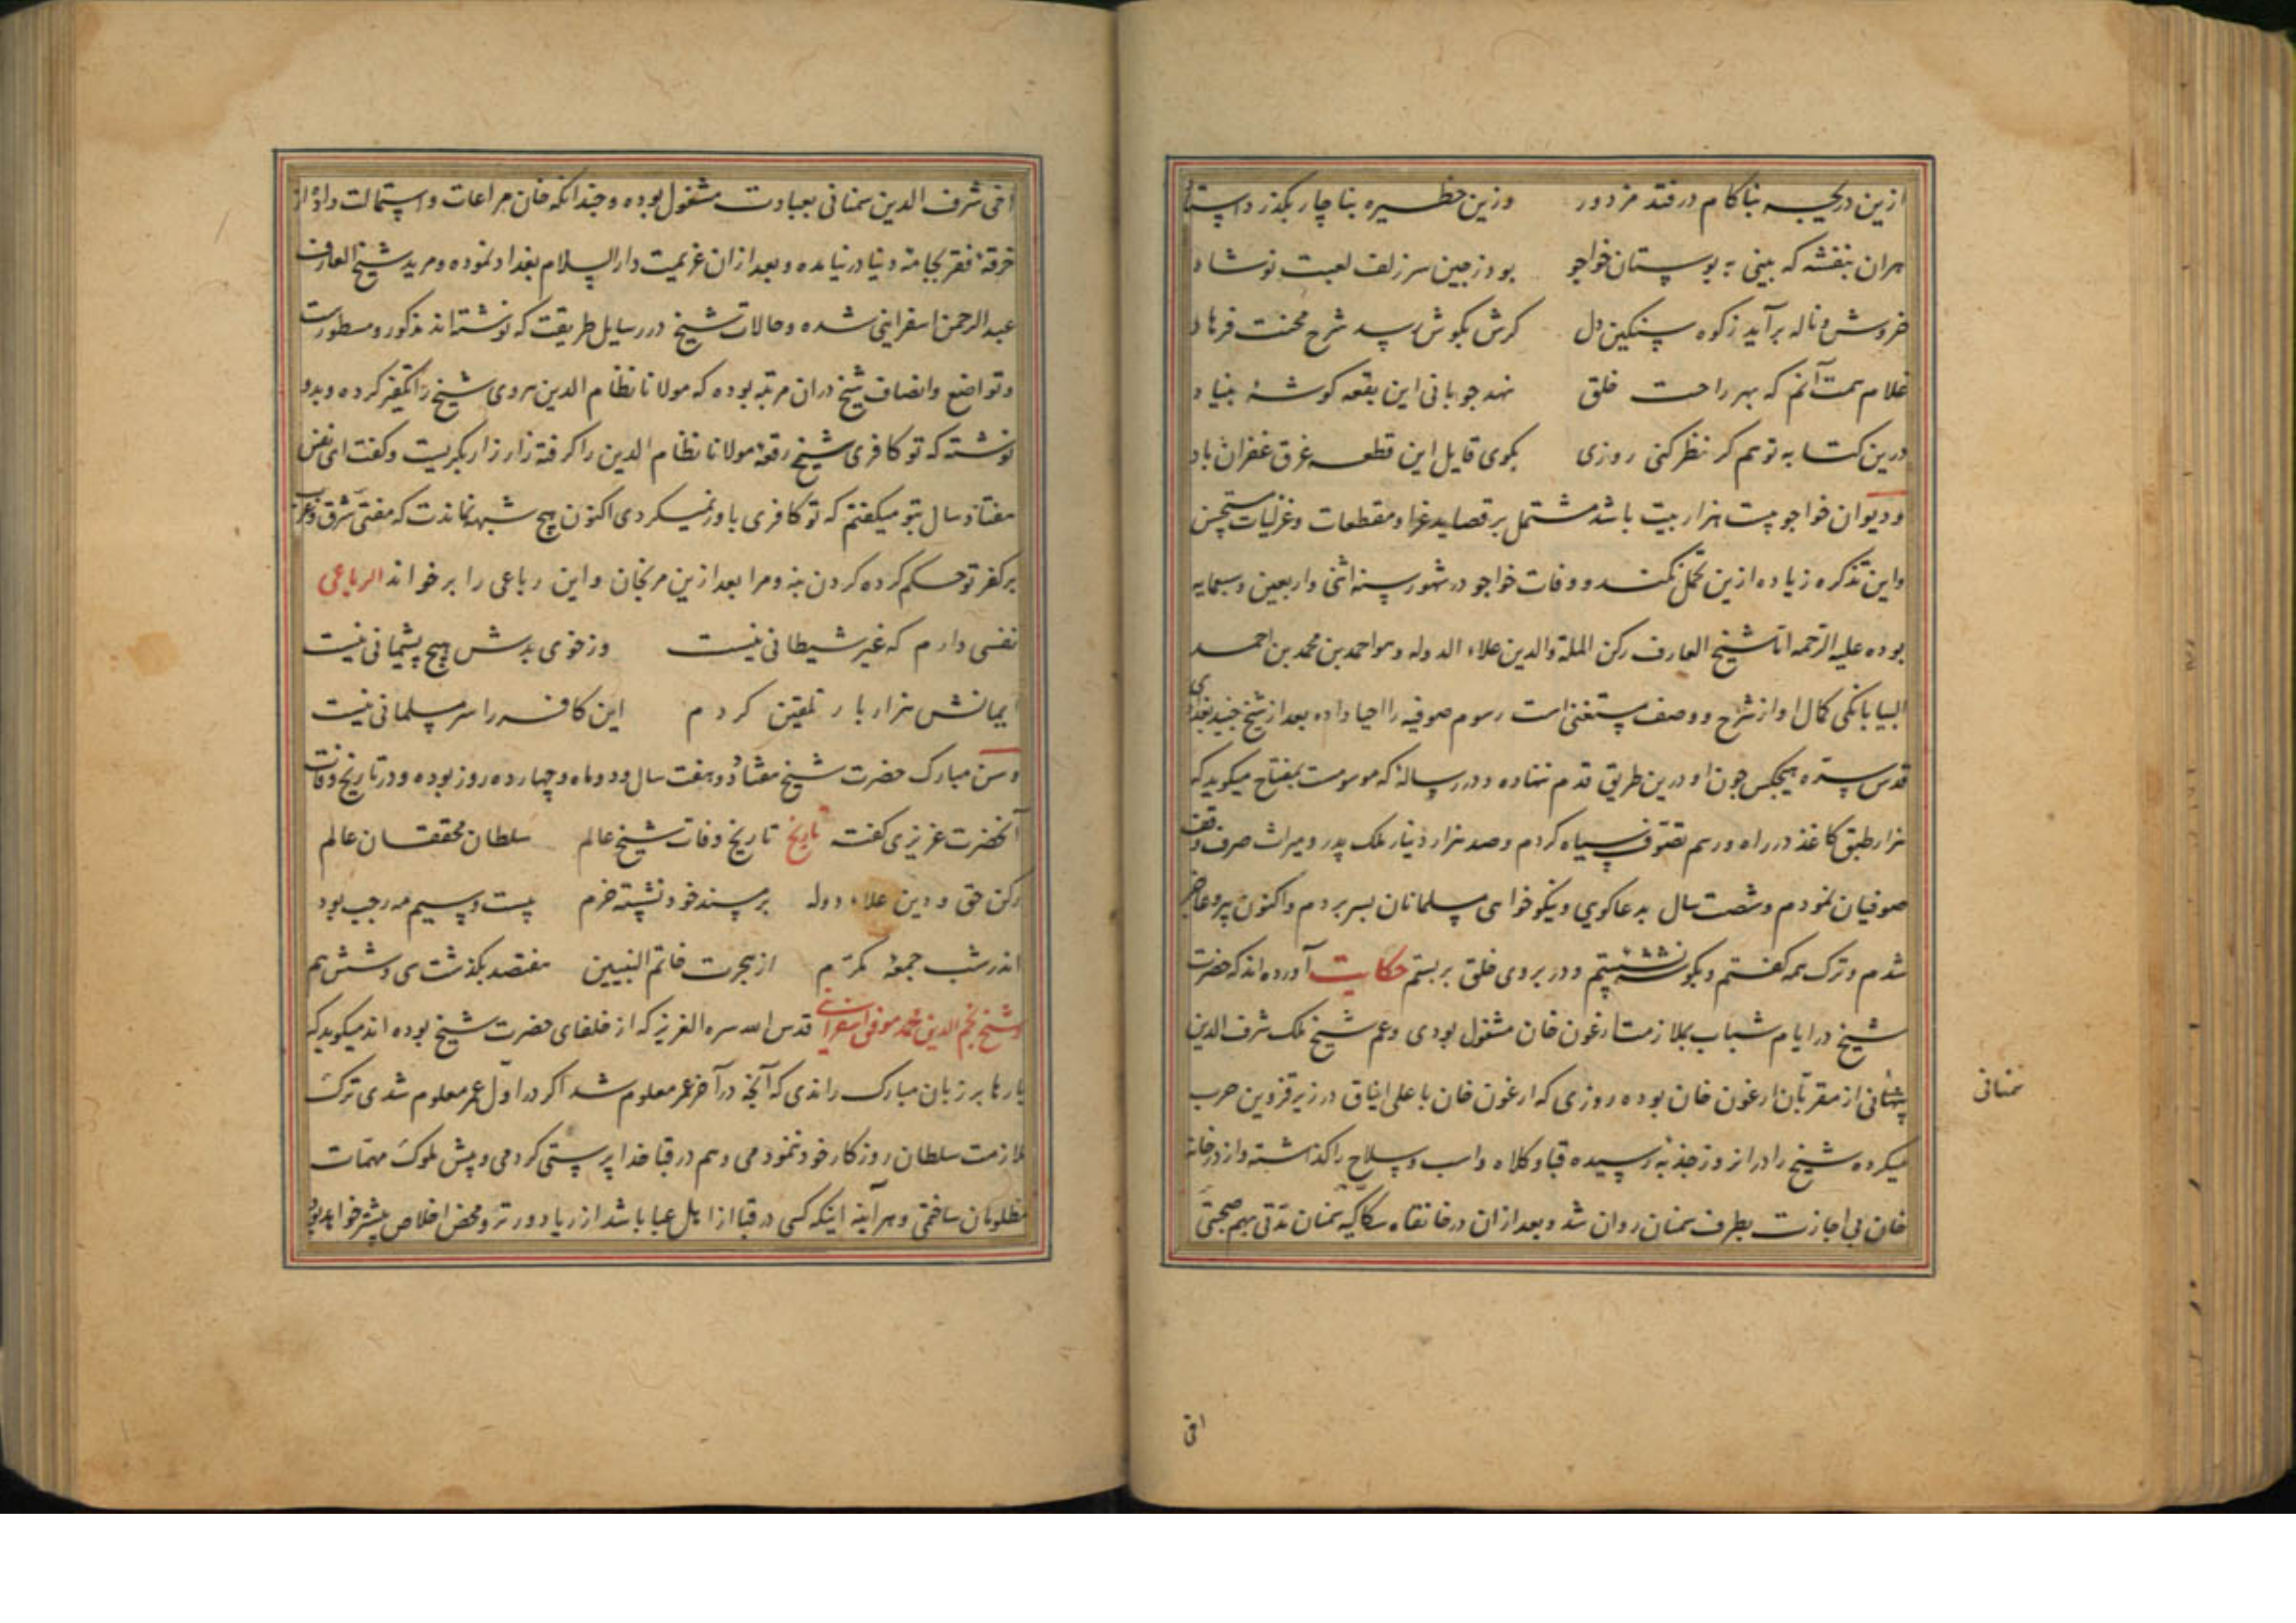 ازین دریچه بناکام درفتد مزدور وزین حظیره بناچار بگذرد استا
هران بنفشه که بینی به بوستان خواجو بود زمین سر زلف لعبت نوشاد
خروش و ناله برآید زکوه سنکین دل کرش بکوش رسد شرح محنت فرهاد
غلام همت آنم که بهر راحت خلق نهد جو بانی این بقعه کوشهٔ بنیاد
درین کتابه تو هم کر نظر کنی روزی بکوی قایل این قطعه غرق غفران باد
و دیوان خواجو بیست هزار بیت باشد مشتمل بر قصاید غرا و مقطعات و غزلیات مستحسن
و این تذکره زیاده ازین تحمل نکند و وفات خواجو در شهور سنه اثنی و اربعین و سبعمایه
بوده علیه الرحمه اما شیخ العارف رکن الملة والدین علاء الدوله و هو احمد بن محمد بن احمد
البیابانکی کمال او از شرح و وصف مستغنی است رسوم صوفیه را احیا داده بعد از شیخ جنید بغدادی
قدس سره هیچکس جون او درین طریق قدم ننهاده و در رسالهٔ که موسومست بمفتاح میکوید که
هزار طبق کاغذ در راه و رسم تصوف سیاه کردم و صد هزار دینار ملک پدر و میراث صرف و وقف
صوفیان نمودم و شصت سال بدعاکویی و نیکو خواهی مسلمانان بسر بردم و اکنون پیر و عاجز
شدم و ترک همه کفتم و بکوشهٔ نشستم و در بروی خلق بربستم حکایت آورده اند که حضرت
شیخ در ایام شباب بملازمت ارغون خان مشغول بودی و عم شیخ ملک شرف الدین
سمنانی از مقربان ارغون خان بوده روزی که ارغون خان با علی ایناق در زیر قزوین حرب
سمنانی
میکرده شیخ را در انروز جذبهٔ رسیده قبا و کلاه و اسب و سلاح را کذاشته و از درخانه
خان بی اجازت بطرف سمنان روان شد و بعد ازان در خانقاه سکاکیه سمنان مدتی بهم صحبتی
اخی
اخی شرف الدین سمنانی بعبادت مشغول بوده و جندانکه خان مراعات و استمالت داد از
خرقهٔ فقر بجامهٔ دنیا در نیامده و بعد ازان عزیمت دار السلام بغداد نموده و مرید شیخ العارف
عبد الرحمن اسفراینی شده و حالات شیخ در رسایل طریقت که نوشته اند مذکور و مسطورست
و تواضع و انصاف شیخ دران مرتبه بوده که مولانا نظام الدین هروی شیخ را تکفیر کرده و بدو
نوشته که تو کافری شیخ رقعهٔ مولانا نظام الدین را کرفته زار زار بکریست و کفت ای نفس
هفتاد سال بتو میکفتم که تو کافری باور نمیکردی اکنون هیچ شبهه نماندت که مفتی شرق و غرب
بر کفر تو حکم کرده کردن بنه و مرا بعد ازین مرنجان و این رباعی را بر خواند الرباعی
نفسی دارم که غیر شیطانی نیست وز خوی بدش هیچ پشیمانی نیست
ایمانش هزار بار تلقین کردم این کافر را سر مسلمانی نیست
و سن مبارک حضرت شیخ هفتاد و هفت سال و دو ماه و چهارده روز بوده و در تاریخ وفات
آنحضرت عزیزی کفته تاریخ تاریخ وفات شیخ عالم سلطان محققان عالم
رکن حق و دین علاء دوله بر مسند خود نشسته خرم بیست و سیم مه رجب بود
اندر شب جمعهٔ مکرم از هجرت خاتم النبیین هفتصد بکذشت سی و شش هم
و شیخ نجم الدین محمد موفق اسفراینی قدس الله سره العزیز که از خلفای حضرت شیخ بوده اند میکوید که
بارها بر زبان مبارک راندی که آنچه در آخر عمر معلوم شد اکر در اول عمر معلوم شدی ترک
ملازمت سلطان روزکار خود ننمودمی و هم در قبا خدا پرستی کردمی و پیش ملوک مهمات
مظلومان ساختمی و هر آینه اینکه کسی در قبا از اهل عبا باشد از ریا دورتر و محض اخلاص بیشتر خواهد بود